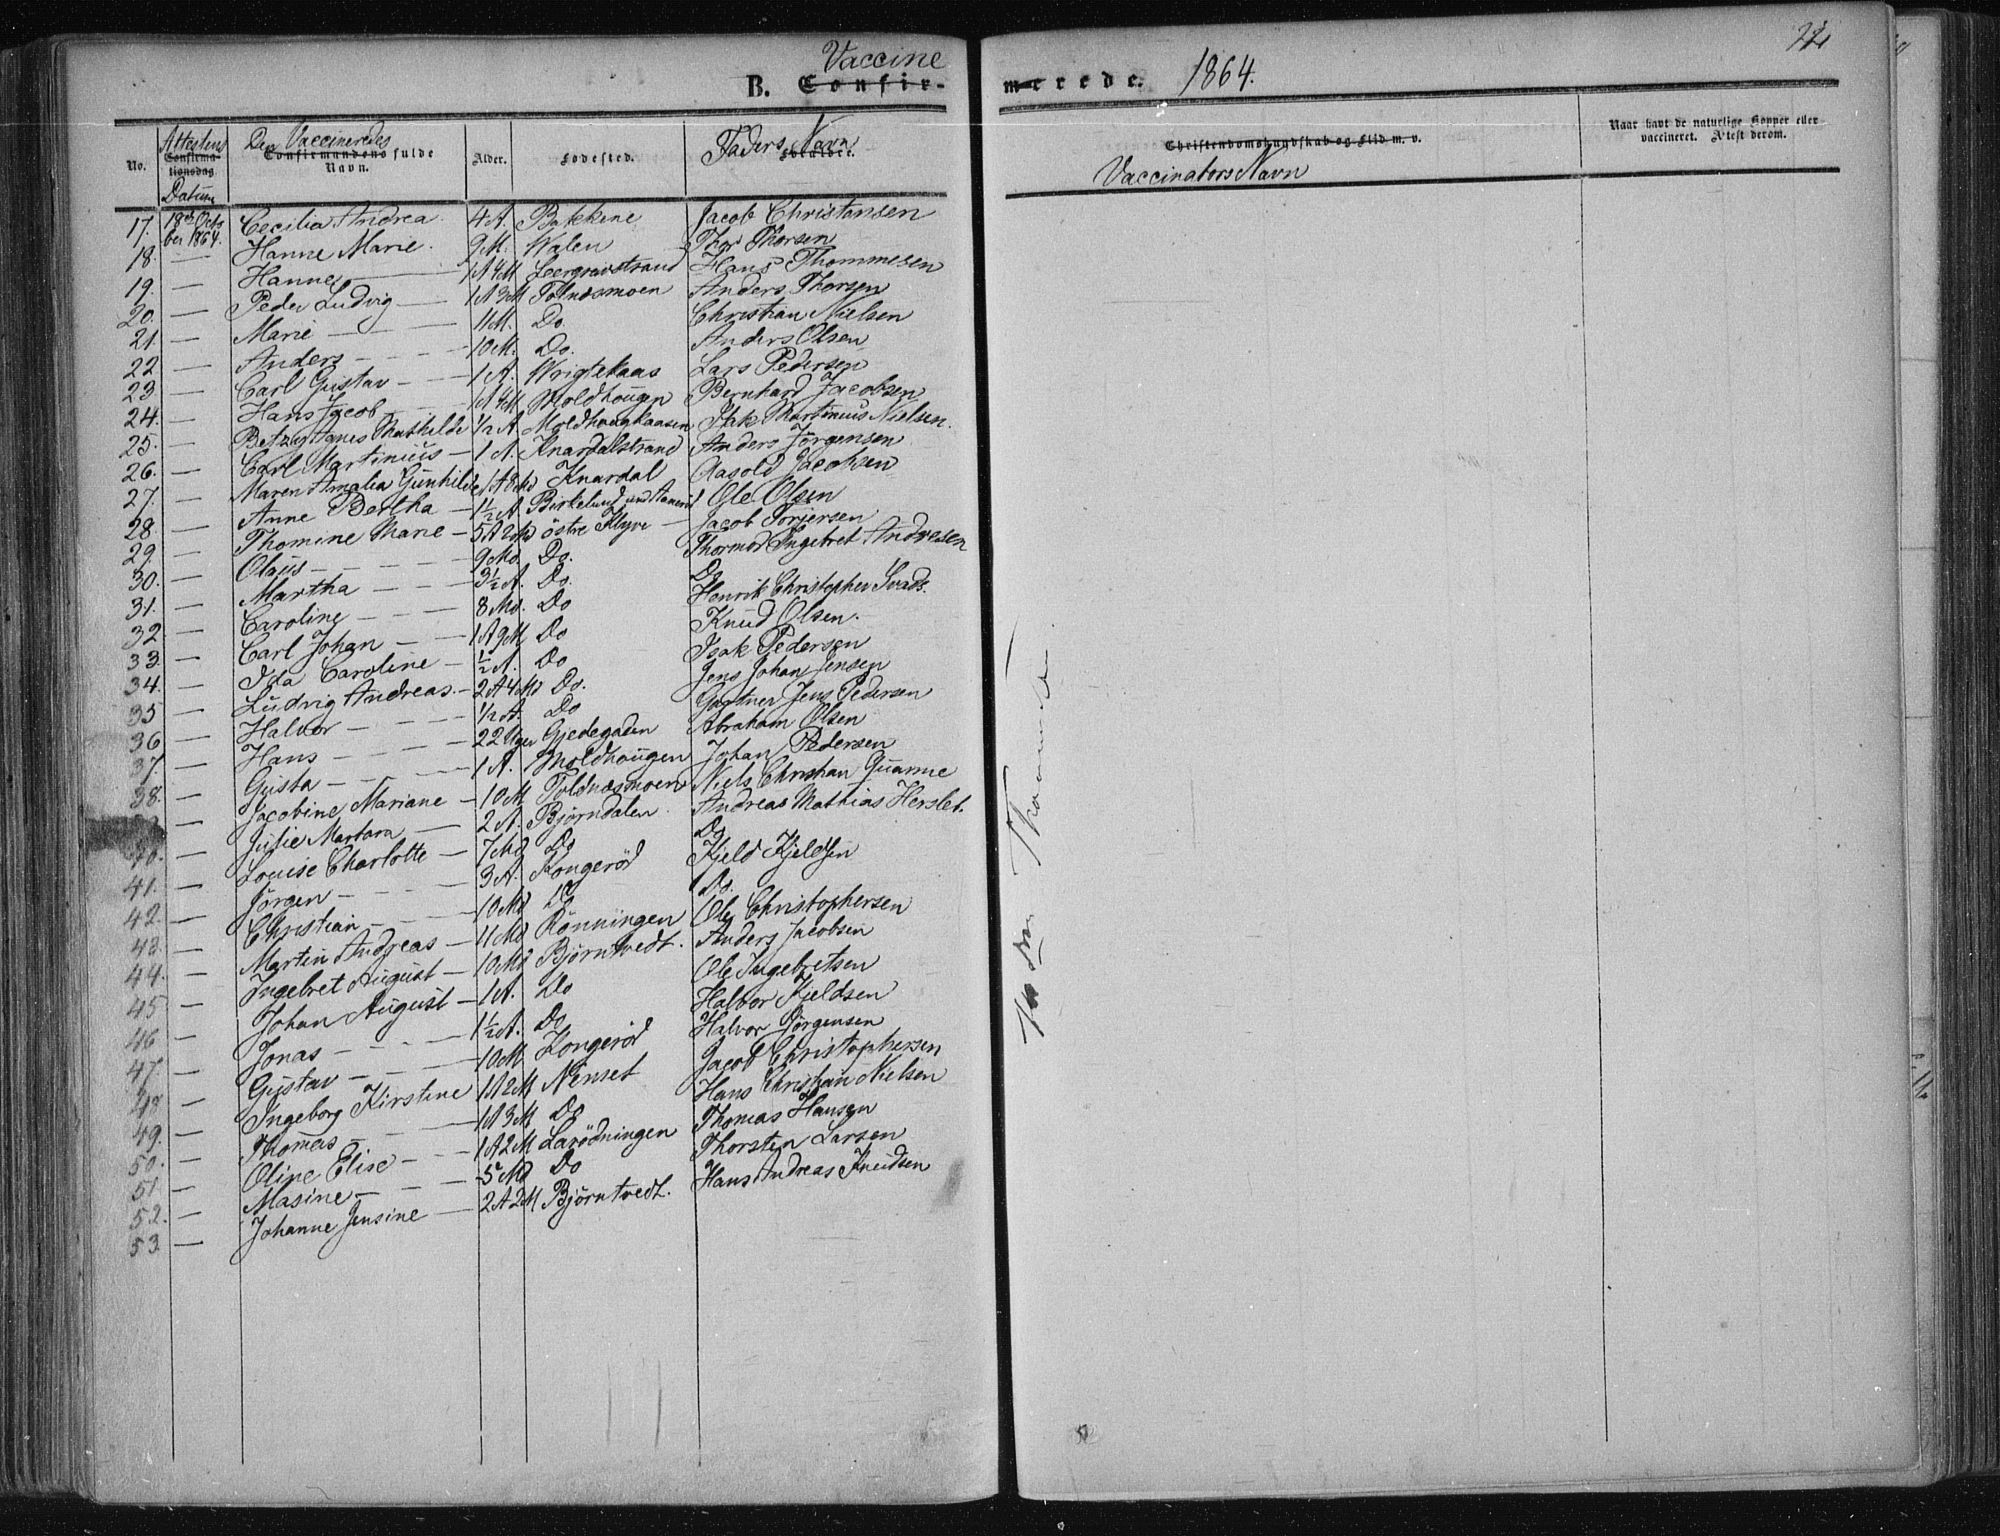 Vaccine
B. Confir-
merede. 1864.
No. Attestens Confirmationsdag Datum Den Vaccineredes Confirmandens fulde Navn. Alder. Fødested. Faders Navn Forældre.
Christendomskundskab og Flid m. v. Vaccinators Navn
Naar havt de naturlige Kopper eller vaccineret. Attest derom.
17. 18de Octbr 1864. Cecilia Andrea 4 A. Bakkene Jacob Christensen
18. — Hanne Marie 9 M. Walen Thor Thorsen
19. — Hanne 1 A 4 M Leergravstrand Hans Thommesen
20. — Peder Ludvig 1 A 3 M Tolnæsmoen Anders Thorsen
21. — Marie 11 M. Do. Christian Nielsen
22 — Anders 10 M. Do. Anders Olsen
23. — Carl Gustav 1 A. Wrigtekaas Lars Pedersen
24. — Hans Jacob 1 A 4 M Moldhougen Bernhard Jacobsen
25. — Betzy Agnes Mathilde 1/2 A Moldhougkaasen Isak Martinius Nielsen.
26. — Carl Martinius 1 A. Knardalstrand Anders Jørgensen
27. — Maren Amalia Gunhilde 1 A 8 Md Knardal Aasold Jacobsen
28. — Anne Bertha 1 1/2 A Birkelund Ole Olsen
29. — Thomine Marie 5 A 2 Md østre Klyve Jacob Torjersen
30. — Olaus 9 Md. Do. Thormod Ingebret Andresen
31. — Martha 3 1/2 A. Do. Do
32 — Caroline 8 Md. Do Henrik Christopher
33. — Carl Johan 1 A 9 M Do Knud Olsen.
34. — Ida Caroline 1/2 A. Do Isak Pedersen
35 — Ludvig Andreas 2 A 4 Md Do. Jens Johan Jensen
36 — Halvor 1/2 A. Do Gartner Jens Pedersen
37. — Hans 22 Uger Gjedegaden Abraham Olsen
38. — Gusta 1 A. Moldhougen Johan Pedersen
— Jacobine Mariane 10 M Toldnæsmoen Niels Christian Quarme
40. — Julie Martara 2 A. Bjørndalen Andreas Mathias Herslet.
41. — Louise Charlotte 7 Md Do Do
42. — Jørgen 3 A. Kongerød Kjeld Kjeldsen
43. — Christian 10 Md Do Do.
44. — Martin Andreas 11 Md Rønningen Ole Christophersen
45 — Ingebret August 10 Md Bjørntvedt. Anders Jacobsen
46 — Johan August 1 A. Do Ole Ingebretsen
47. — Jonas 1 1/2 A. Do Halvor Kjeldsen
48 — Gustav 10 M Kongerød Halvor Jørgensen
49. — Ingeborg Kirstine 1 A 2 M Nenset Jacob Christophersen
50. — Thomas 1 A 3 M Do Hans Christian Nielsen
51. — Oline Elise 1 A 2 M Larødningen Thomas Hansen
52. — Masine 5 Md Do Thorsten Larsen
53 — Johanne Jensine 2 A 2 M Bjørntvedt. Hans Andreas Knudsen